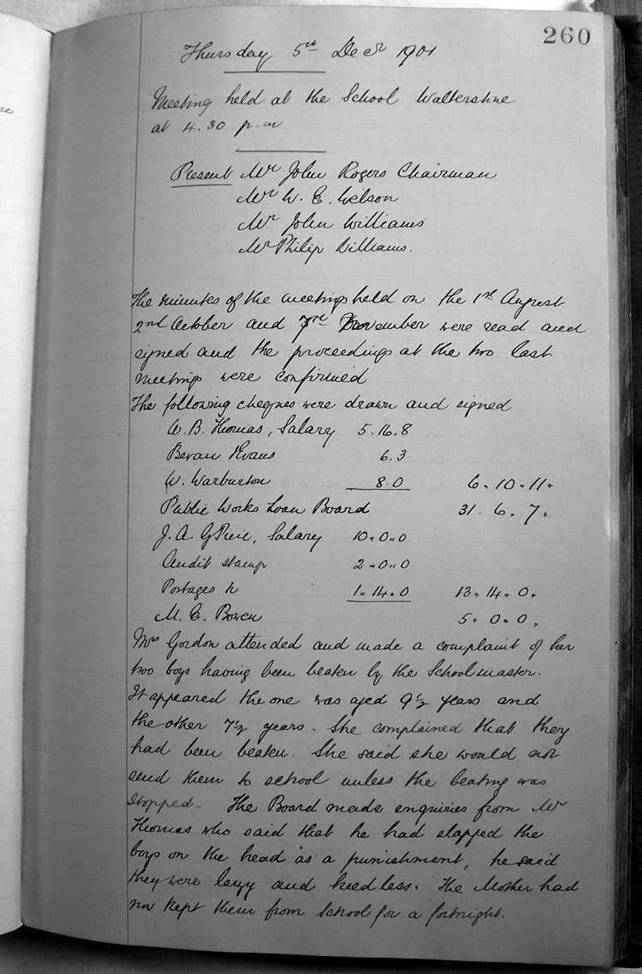 260
Thursday 5th Decr 1901
Meeting held at the School Walterstone
at 4.30 p.m
Present Mr John Rogers Chairman
Mr W. E. Gelson
Mr John Williams
Mr Philip Williams.
The minutes of the meetings held on the 1st August
2nd October and 7th November were read and
signed and the proceedings at the two last
meetings were confirmed
The following cheques were drawn and signed
W. B. Thomas, Salary 5.16.8
Bevan Evans 6.3
W. Warburton 8.0 6.10.11.
Public Works Loan Board 31.6.7.
J. A. G Salary 10.0.0
Audit stamp 2.0.0
Postages &c 1.14.0 13.14.0.
M. E. Bowen 5.0.0.
Mrs Gordon attended and made a complaint of her
two boys having been beaten by the Schoolmaster.
It appeared the one was aged 9½ years and
the other 7½ years. She complained that they
had been beaten. She said she would not
send them to school unless the beating was
stopped. The Board made enquiries from Mr
Thomas who said that he had slapped the
boys on the head as a punishment, he said
they were lazy and heedless. The Mother had
now kept them from School for a fortnight.